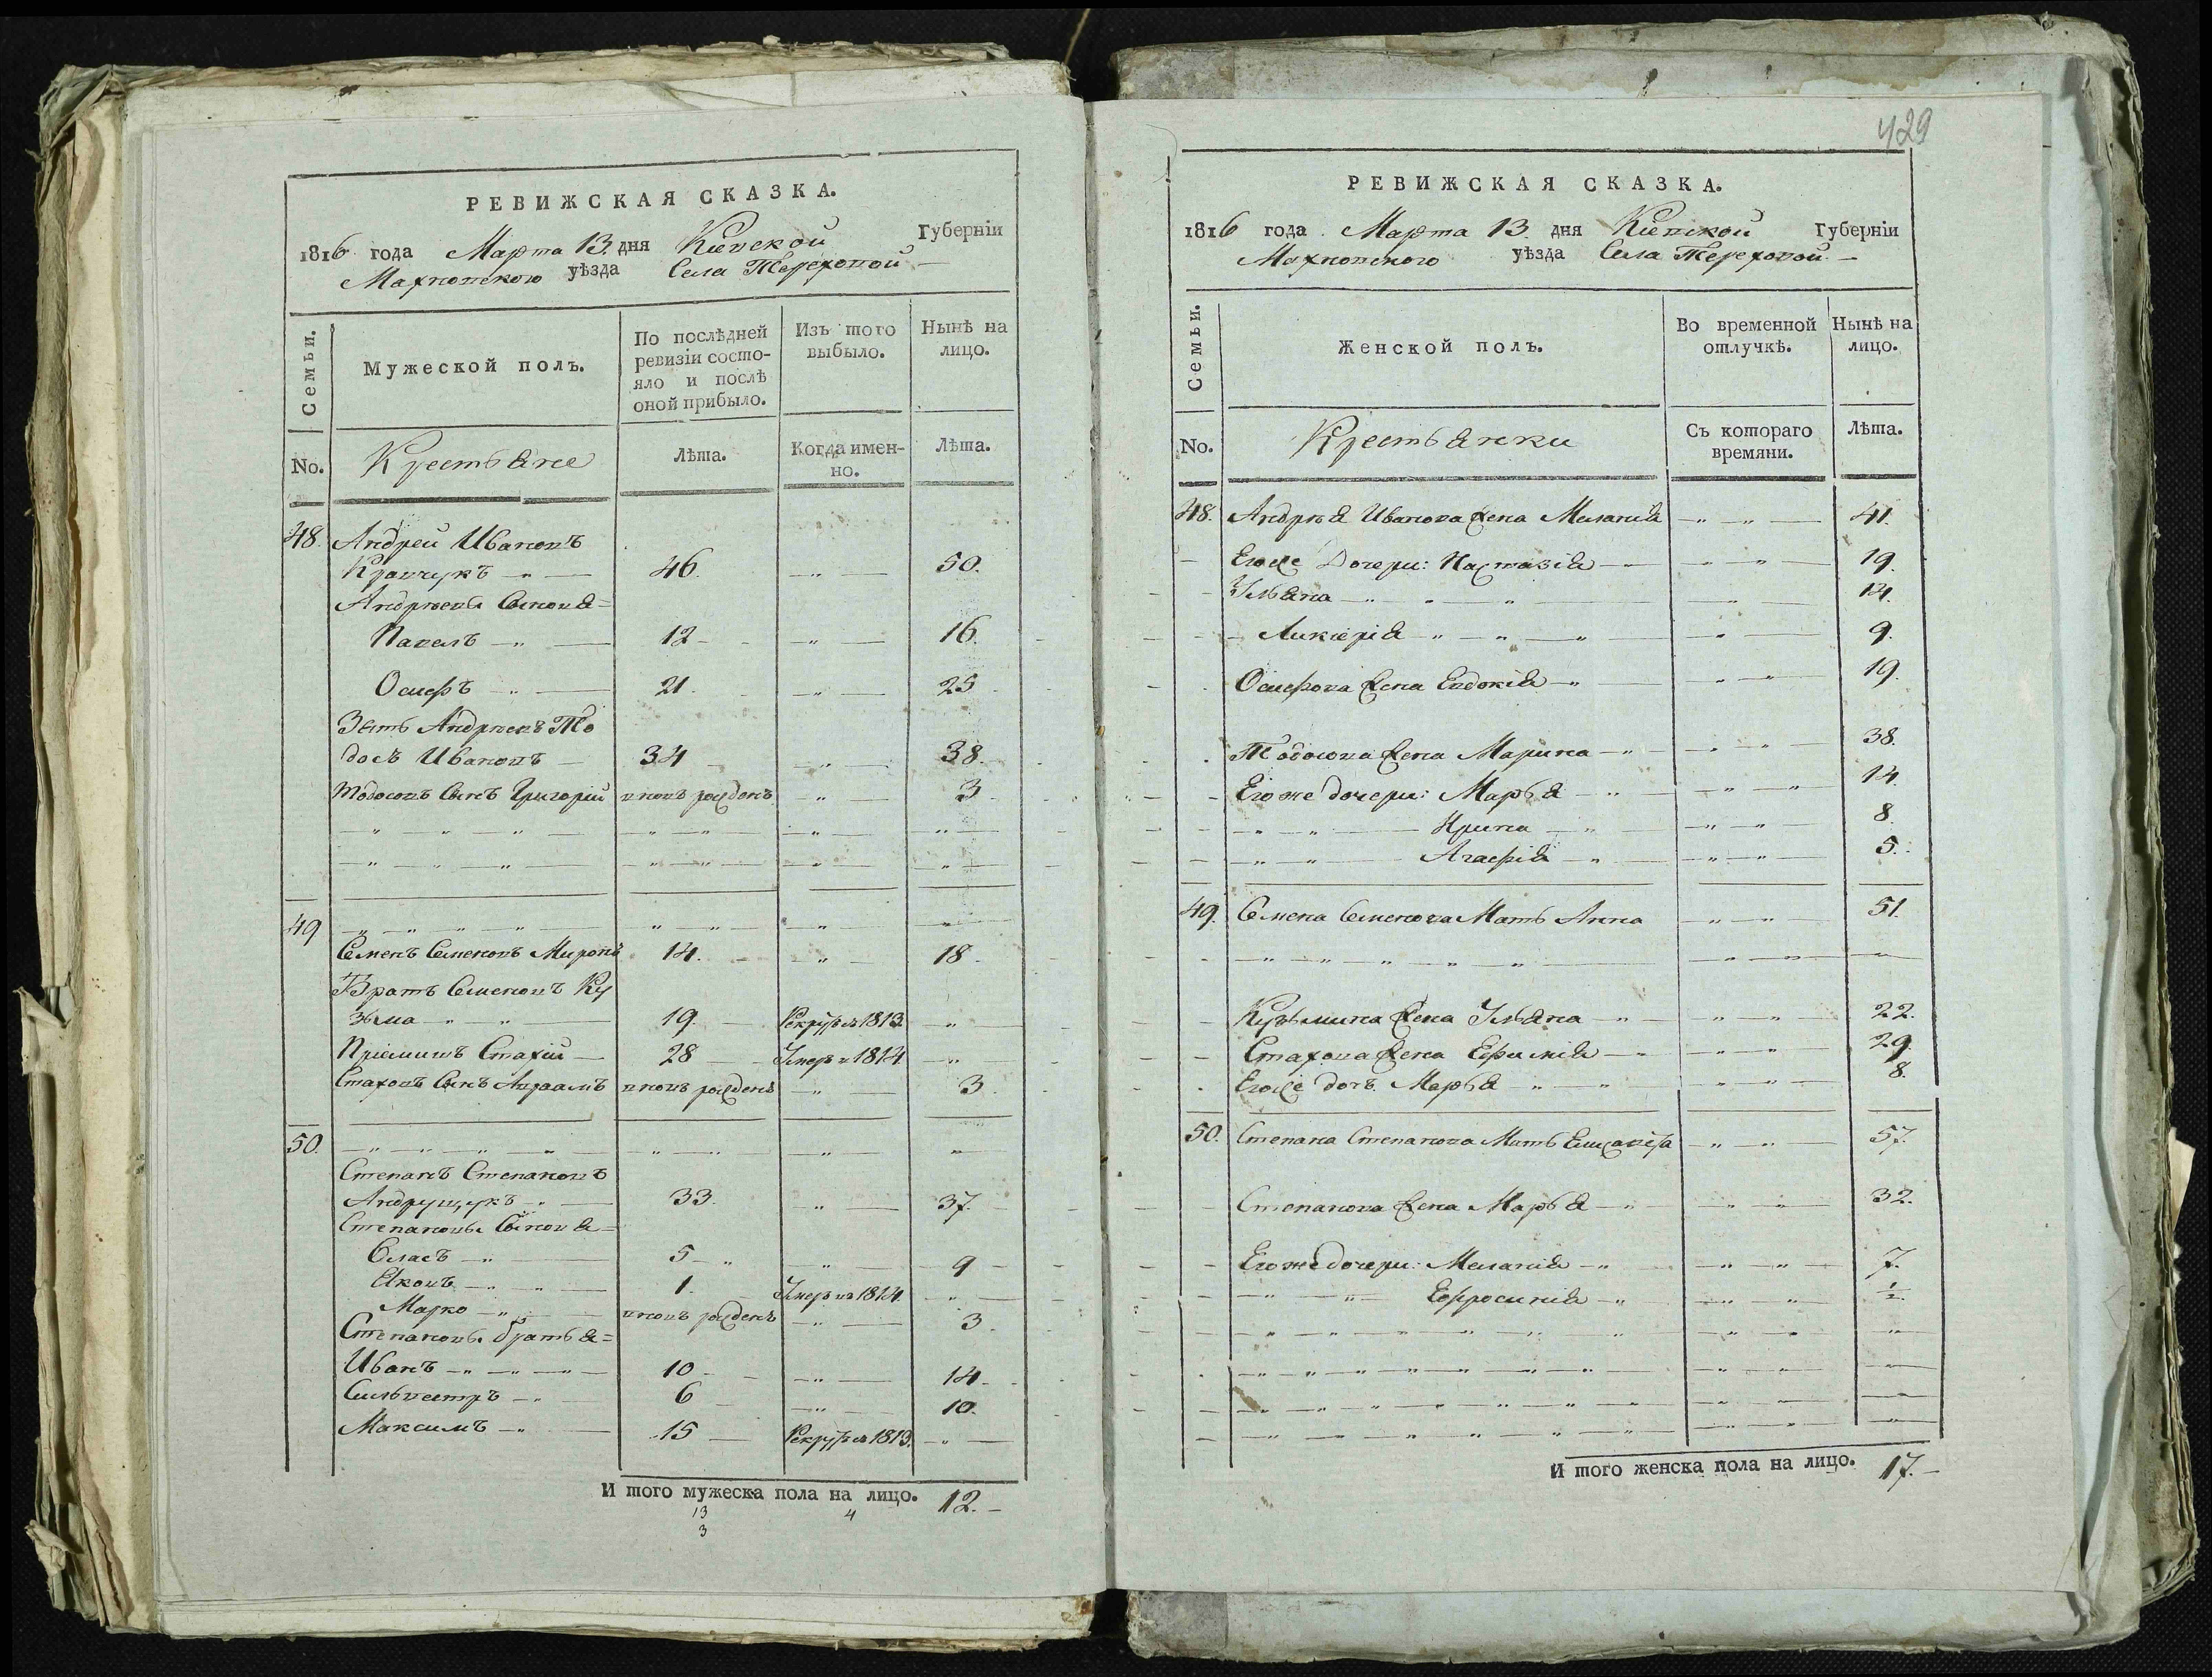 РЕВИЖСКАЯ СКАЗКА.
1816 года Марта 13. дня Кіевской Губерніи
Махновского уѣзда Села Терехової
Семьи.
Мужеской полъ.
По послѣдней ревизіи состо-
яло и послѣ оной прибыло.
Изъ того выбыло.
Нынѣ на лицо.
No.
Крестьяне
Лѣта.
Когда имен-
но.
Лѣта.
48. Андрей Ивановъ
Кравчукъ 46. 50.
Андрѣевы Сыновя=
Павелъ 12 16.
Осифъ 21. 25
Зять Андрѣевъ То
досъ Ивановъ 34 38.
Тодосовъ Сынъ Григорій вновь рожденъ 3
49
Семенъ Семеновъ Миронъ 14. 18
Братъ Семеновъ Ку
зьма 19. Рекрут: въ 1813.
Пріемишъ Стахій 28 Умеръ в 1814
Стаховъ Сынъ Авраамъ вновь рожденъ 3
50.
Степанъ Степановъ
Андрущукъ 33. 37.
Степановы Сыновя=
Власъ 5 9
Яковъ 1. Умеръ въ 1814.
Марко вновь рожденъ 3.
Степановы братья=
Иванъ 10 14
Сильвестръ 6 10.
Максимъ 15 Рекрут: въ 1813.
И того мужеска пола на лицо. 12.
13 4
3
429
РЕВИЖСКАЯ СКАЗКА.
1816 года Марта 13. дня Кіевской Губерніи
Махновского уѣзда Села Терехової
Семьи.
Женской полъ.
Во временной отлучкѣ.
Нынѣ на лицо.
No.
Крестьянки
Съ котораго времяни.
Лѣта.
48. Андрѣя Иванова жена Меланія 41.
Егоже Дочери: Настазія 19.
Ульяна 14.
Ликіерія 9.
Осифова жена Евдокія 19.
Тодосова жена Марина 38.
Его же дочери: Марья 14.
Ирина 8.
Агафія 5.
49. Семена Семенова Мать Анна 51.
Кузьмина жена Ульяна 22.
Стахова жена Ефимія 29
Егоже дочъ Марья 8.
50. Степана Степанова Мать Елисавѣта 57.
Степанова жена Марья 32.
Его же дочери: Меланія 7.
Ефросинія 1/2
И того женска пола на лицо. 17.